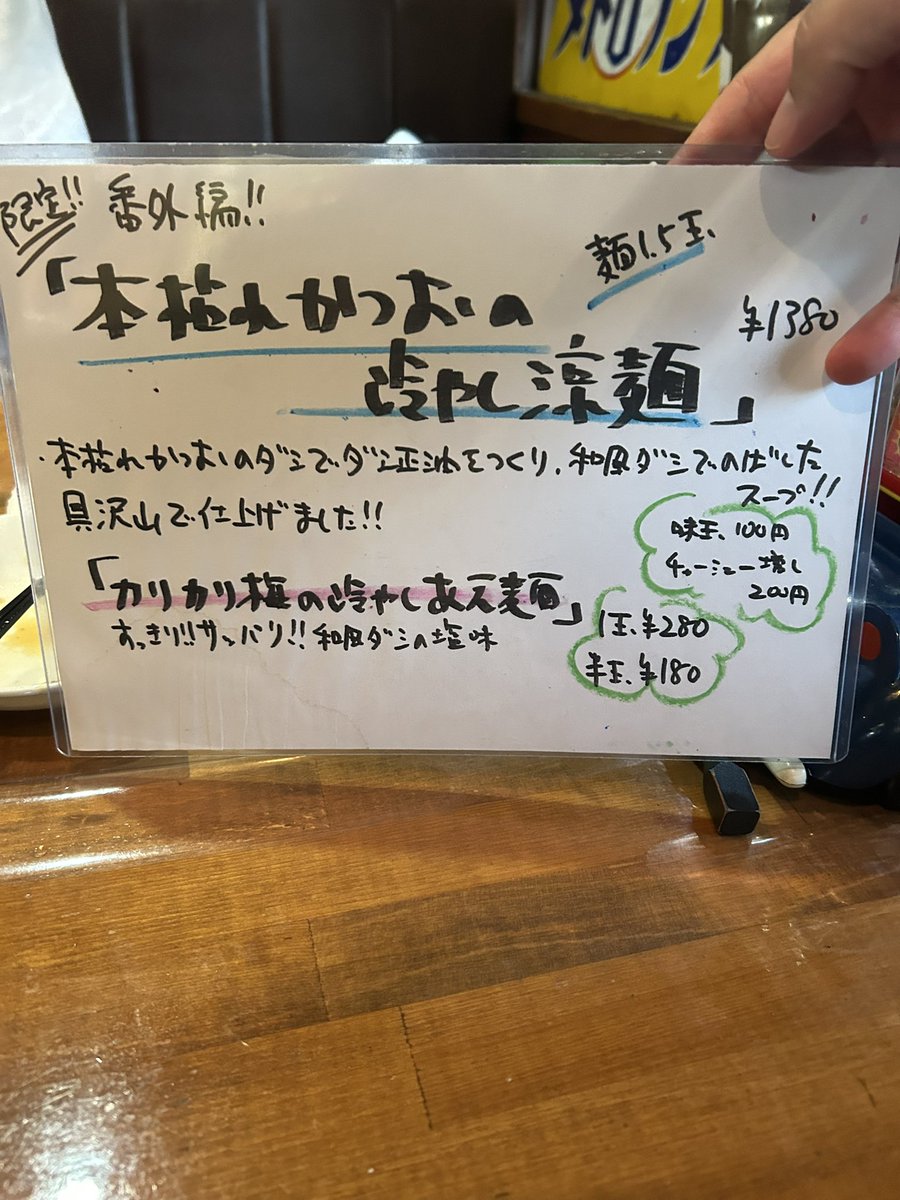 限定!! 番外編!!
麺1.5玉
「本枯れかつおの
¥1380
冷やし涼麺」
・本枯れかつおのダシでダシ正油をつくり、和風ダシでのばした
スープ!!
具沢山で仕上げました!!
味玉、100円
チャーシュー増し
200円
「カリカリ梅の冷やしあえ麺」
1玉、¥280
すっきり!!サッパリ!!和風ダシの塩味
半玉、¥180